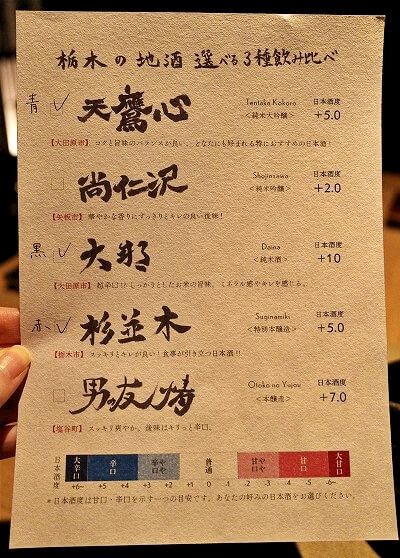 栃木の地酒 選べる3種飲み比べ
青 ✓ 天鷹心 Tentaka Kokoro <純米大吟醸> 日本酒度 +5.0
【大田原市】コクと旨味のバランスが良い、どなたにも好まれる特におすすめの日本酒!
尚仁沢 Shojinzawa <純米吟醸> 日本酒度 +2.0
【矢板市】華やかな香りにすっきりとキレの良い後味!
黒 ✓ 大那 Daina <純米酒> 日本酒度 +10
【大田原市】超辛口!!しっかりとしたお米の旨味、ミネラル感やキレを感じる。
赤 ✓ 杉並木 Suginamiki <特別本醸造> 日本酒度 +5.0
【栃木市】スッキリとキレが良い!食事が引き立つ日本酒!!
男の友情 Otoko no Yujou <本醸造> 日本酒度 +7.0
【塩谷町】スッキリ爽やか。後味はキリっと辛口。
大辛口 辛口 やや辛口 普通 やや甘口 甘口 大甘口
日本酒度 +6~ +5 +4 +3 +2 +1 0 -1 -2 -3 -4 -5 -6~
*日本酒度は甘口・辛口を示す一つの目安です。あなたの好みの日本酒をお選びください。